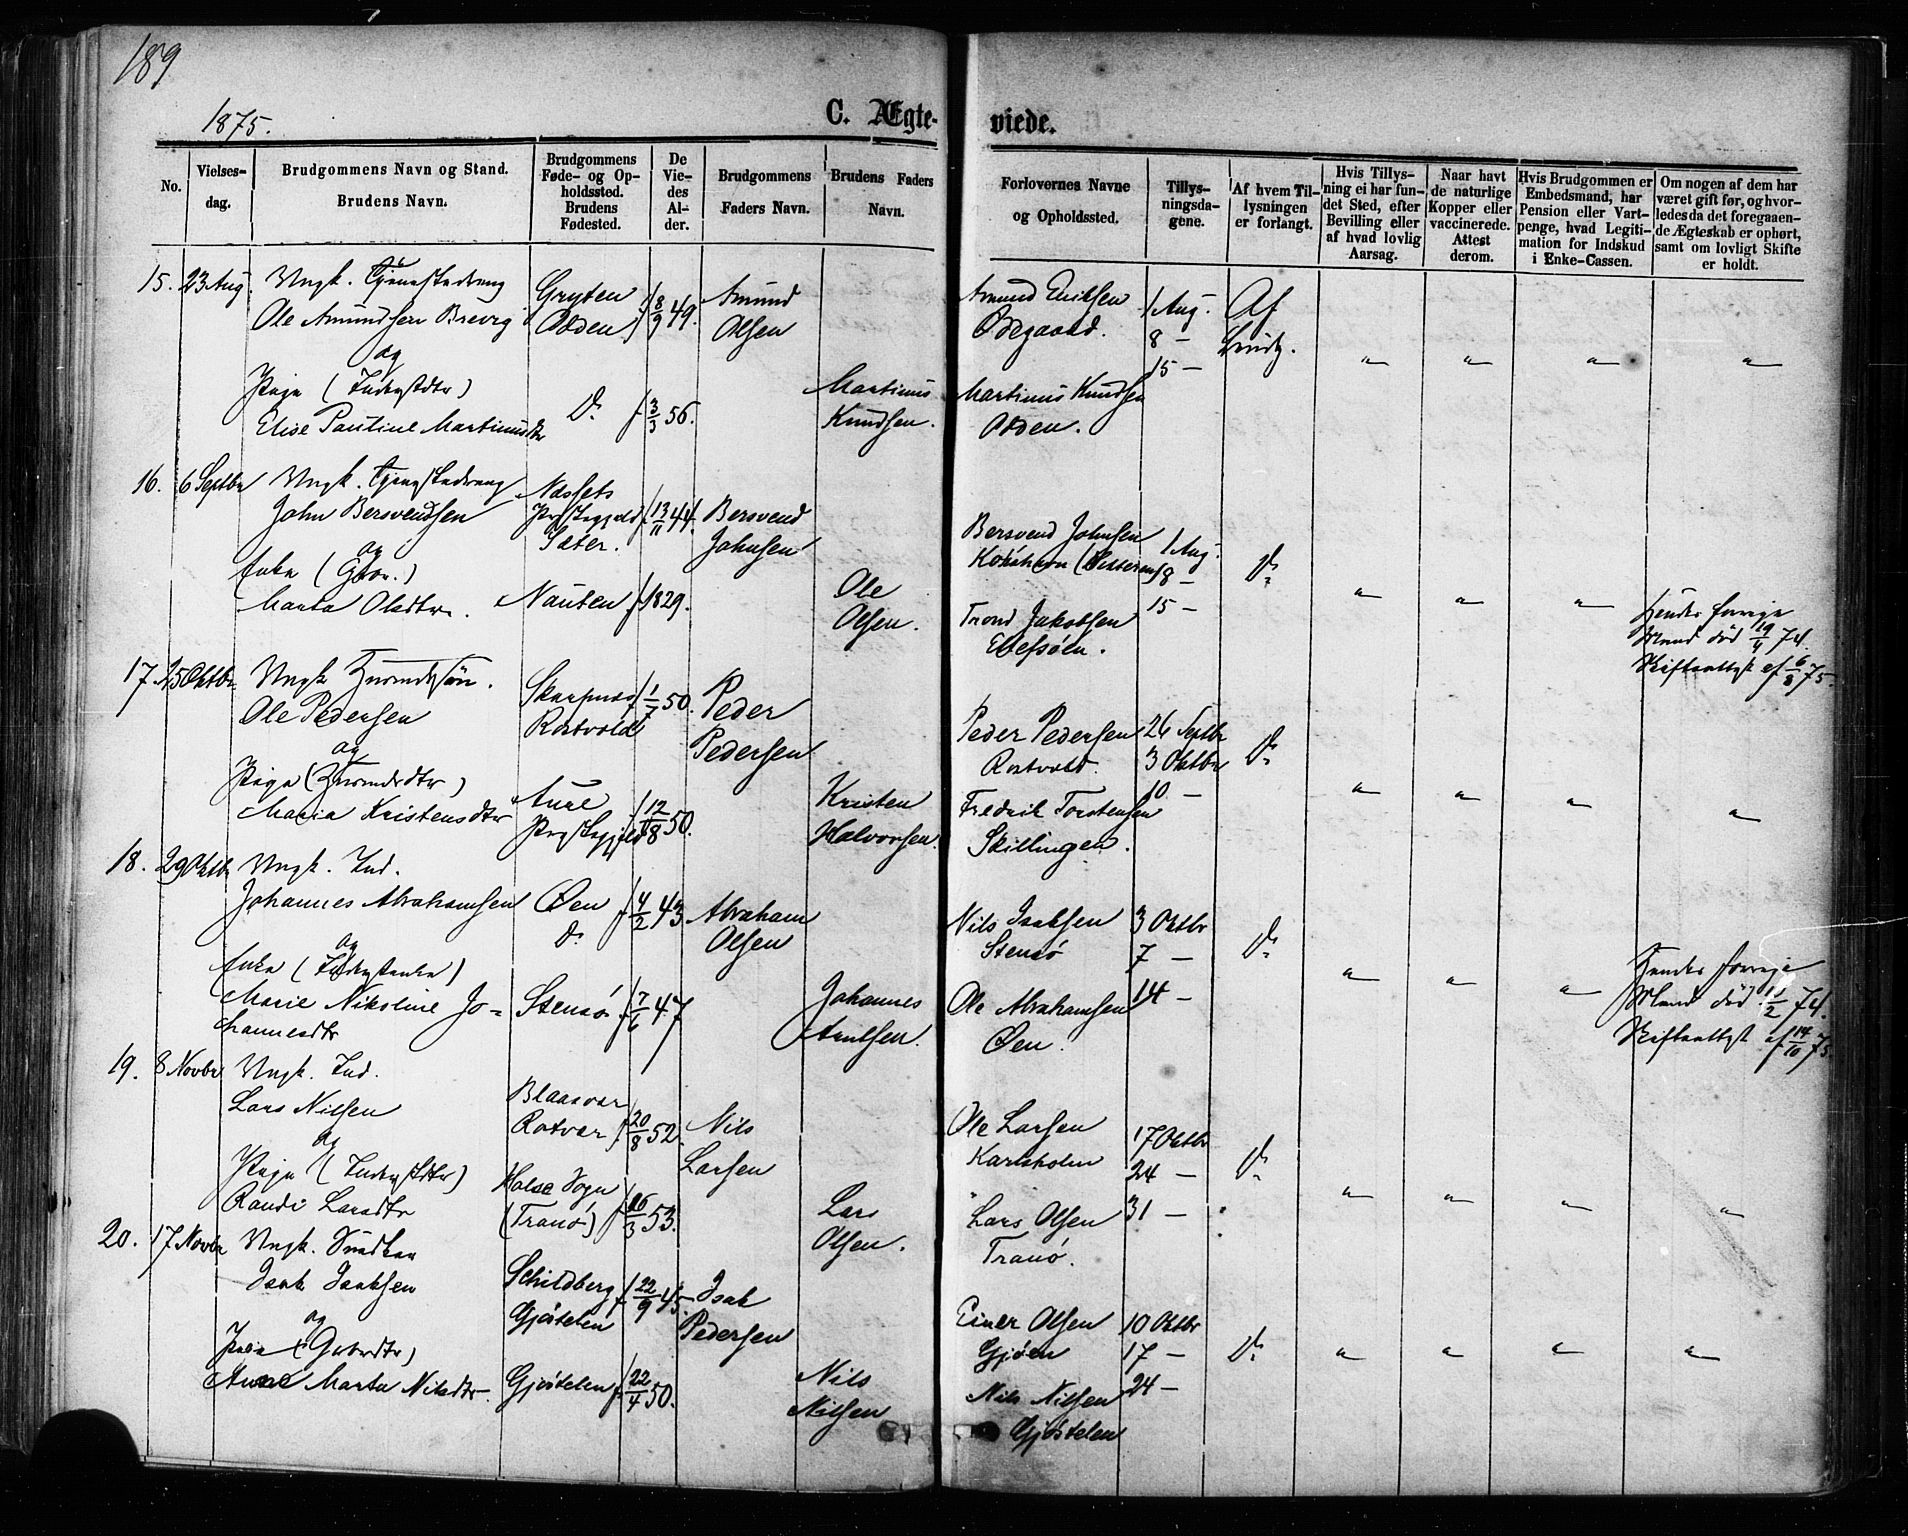 189
1875.
C. Ægte-
viede.
No.
Vielses-
dag.
Brudgommens Navn og Stand.
Brudens Navn.
Brudgommens
Føde- og Op-
holdssted.
Brudens
Fødested.
De
Vie-
des
Al-
der.
Brudgommens
Faders Navn.
Brudens Faders
Navn.
Forlovernes Navne
og Opholdssted.
Tillys-
ningsda-
gene.
Af hvem Til-
lysningen
er forlangt.
Hvis Tillys-
ning ei har fun-
det Sted, efter
Bevilling eller
af hvad lovlig
Aarsag.
Naar havt
de naturlige
Kopper eller
vaccinerede.
Attest
derom.
Hvis Brudgommen er
Embedsmand, har
Pension eller Vart-
penge, hvad Legiti-
mation for Indskud
i Enke-Cassen.
Om nogen af dem har
været gift før, og hvor-
ledes da det foregaaen-
de Ægteskab er ophørt,
samt om lovligt Skifte
er holdt.
15. 23 Aug. Ungk.
Ole Amundsen
og
Pige (
Elise Pauline Martinusdtr
Gryten
Odden
f 8/9 49.
D.
f 3/3 56.
Amund
Olsen
Martinus
Knudsen.
Amund Eriksen
Ødegaard.
Martinus Knudsen
Odden.
1 Aug.
8 —
15 —
Af
" " " "
16. 6 Septbr Ungk.
John Bersvendsen
og
Enke (
Marta Olsdtr.
Næssets
Præstegjeld
Sæter.
f 13/11 44.
Nausten f 1829.
Bersvend
Johnsen
Ole
Olsen.
Bersvend Johnsen
Trond Jakobsen
1 Aug.
8 —
15 —
D.
" " "
Hendes forrige
Mand død 19/4 74.
Skifteattest af 6/8 75.
17. 25 Oktbr Ungk. Huusmdssøn.
Ole Pedersen
og
Pige (Huusmdsdtr)
Maria Kristensdtr
Skarpnes
Rostvold
f 1/7 50.
Aure
Præstegjeld
f 12/8 50.
Peder
Pedersen
Kristen
Halvorsen.
Peder Pedersen
Rostvold.
Fredrik Torstensen
Skillingen.
26 Septbr
3 Oktbr
10 —
D.
" " " "
18. 29 Oktbr Ungk. Ind.
Johannes Abrahamsen
og
Enke (
Marie Nikoline Jo-
hannesdtr
Øen
D.
f 4/2 43
Stensø f 7/6 47
Abraham
Olsen
Johannes
Arntsen.
Nils Isaksen
Stensø
Ole Abrahamsen
Øen.
3 Oktbr
7 —
14 —
D.
" " "
Hendes forrige
Mand død 11/2 74.
Skifteattest af 14/10 75.
19. 8 Novbr Ungk. Ind.
Lars Nilsen
og
Pige (
Randi Larsdtr
Blaasvær
Rotvær
f 20/8 52.
Halse Sogn
(Tranø)
f 16/3 53.
Nils
Larsen
Lars
Olsen.
Ole Larsen
Karlsholm
Lars Olsen
Tranø.
17 Oktbr
24 —
31 —
D.
" " " "
20. 17 Novbr Ungk.
Isak Isaksen
og
Pige (Gaardrdtr)
Anne Marta Nilsdtr.
Schildberg
Gjøstelen
f 22/9 45.
Gjøstelen f 22/4 50.
Isak
Pedersen
Nils
Nilsen
Einer Olsen
Gjøen
Nils Nilsen
Gjøstelen
10 Oktbr
17 —
24 —
D.
" " " "